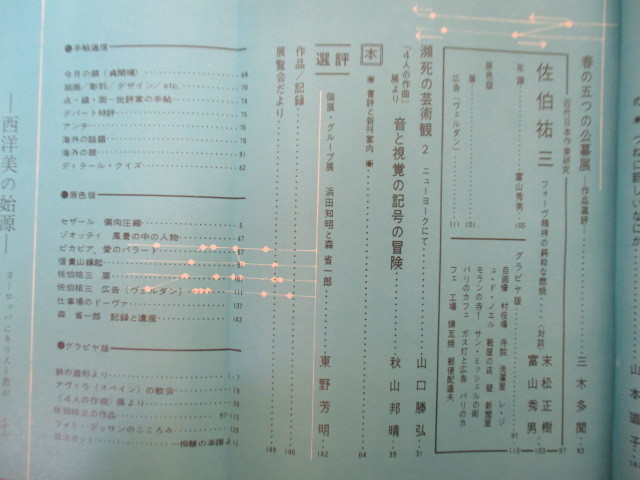 春の五つの公募展 ―作品選評― 三木多聞 83
近代日本作家研究
佐伯祐三 フォーヴ精神の純粋な燃焼 〈対談〉 末松正樹 富山秀男 113
年譜 富山秀男 105
原色版
扉 101
広告（ヴェルダン） 111
グラビヤ版 97
自画像 村役場 寺院 洗濯屋 レ・ジュ・ド・ノエル 靴屋の店 壁 新聞屋
モランの寺 サン・ミッシェルの街
パリのカフェ ガス灯と広告 パリのカフェ
工場 煉瓦焼 郵便配達夫
瀕死の芸術観 2 ニューヨークにて 山口勝弘 31
「4人の作曲」展より 音と視覚の記号の冒険 秋山邦晴 39
本 ●書評と新刊案内● 64
選評 個展・グループ展 浜田知明と森 省一郎 東野芳明 142
作品／記録 146
展覧会だより 149
●手帖通信
今月の顔（貞閑晴） 68
絵画／彫刻／デザイン／etc. 70
点・線・面―批評家の手帖 74
デパート時評 75
アンテナ 76
海外の話題 78
海外の眼 81
ディテール・クイズ 82
●原色版
セザール 偏向圧縮 5
ゾオッティ 風景の中の人物 47
ピカビア，愛のバラード 57
信貴山縁起
佐伯祐三 扉 101
佐伯祐三 広告（ヴェルダン） 111
仕事場のドーヴァ 137
森 省一郎 記録と遺産 143
●グラビヤ版
鉄の造形より 7
アヴィラ（スペイン）の教会 19
〈4人の作曲〉展より 39
佐伯祐三の作品 97・113
フォト・デッサンのこころみ 129
―西洋美の始源―
ヨーロッパにキリスト教が